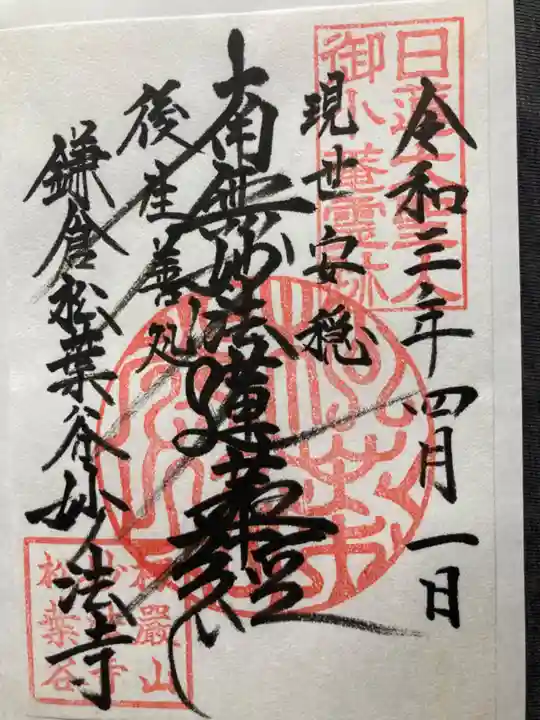 令和三年四月一日
現世安穏
南無妙法蓮華経
後生善処
鎌倉松葉谷妙法寺
日蓮大聖人
御小菴霊跡
楞厳山
妙法寺
松葉谷